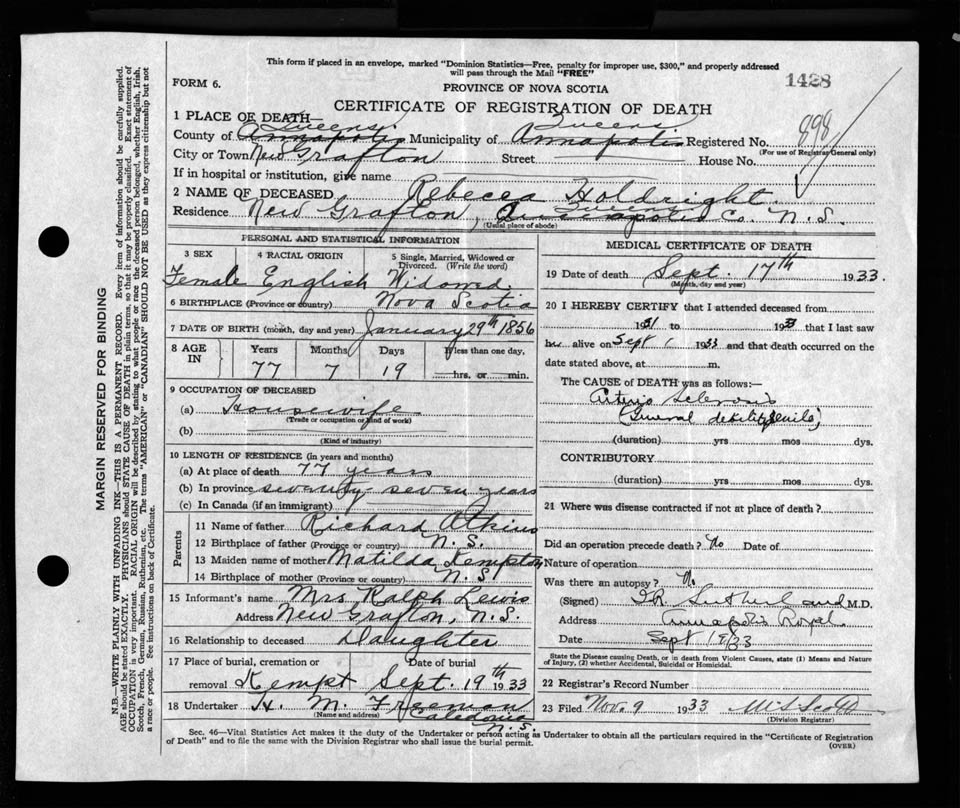 This form if placed in an envelope, marked "Dominion Statistics—Free, penalty for improper use, $300," and properly addressed
will pass through the Mail "FREE"
1428
FORM 6.
PROVINCE OF NOVA SCOTIA
CERTIFICATE OF REGISTRATION OF DEATH
1 PLACE OF DEATH—
County of Annapolis Queens Municipality of Annapolis Queens Registered No. 998
(For use of Registrar General only)
City or Town New Grafton Street House No.
If in hospital or institution, give name
2 NAME OF DECEASED Rebecca Holdright
Residence New Grafton, Queens Co. N.S.
(Usual place of abode)
PERSONAL AND STATISTICAL INFORMATION
3 SEX 4 RACIAL ORIGIN 5 Single, Married, Widowed or
Divorced. (Write the word)
Female English Widowed.
6 BIRTHPLACE (Province or country) Nova Scotia
7 DATE OF BIRTH (month, day and year) January 29th 1856
8 AGE IN Years Months Days If less than one day,
77 7 19 hrs. or min.
9 OCCUPATION OF DECEASED
(a) Housewife
(Trade or occupation or kind of work)
(b)
(Kind of industry)
10 LENGTH OF RESIDENCE (in years and months)
(a) At place of death 77 years
(b) In province seventy-seven years
(c) In Canada (if an immigrant)
Parents
11 Name of father Richard Atkins
12 Birthplace of father (Province or country) N.S.
13 Maiden name of mother Matilda Kempton
14 Birthplace of mother (Province or country) N.S.
15 Informant's name Mrs Ralph Lewis
Address New Grafton, N.S.
16 Relationship to deceased Daughter
17 Place of burial, cremation or Date of burial
removal Kempt Sept. 19th 1933
18 Undertaker H. M. Freeman
(Name and address) Caledonia N.S.
MEDICAL CERTIFICATE OF DEATH
19 Date of death Sept. 17th 1933.
(Month, day and year)
20 I HEREBY CERTIFY that I attended deceased from
1931 to 1933 that I last saw
her alive on Sept 1 1933 and that death occurred on the
date stated above, at m.
The CAUSE of DEATH was as follows:—
Arterio Sclerosis
(General debility senile)
(duration) yrs mos dys.
CONTRIBUTORY
(duration) yrs mos dys.
21 Where was disease contracted if not at place of death?
Did an operation precede death? No Date of
Nature of operation
Was there an autopsy? No
(Signed) Sutherland M.D.
Address Annapolis Royal
Date Sept 19/33
State the Disease causing Death, or in death from Violent Causes, state (1) Means and Nature
of Injury, (2) whether Accidental, Suicidal or Homicidal.
22 Registrar's Record Number
23 Filed Nov 9 1933
(Division Registrar)
Sec. 46—Vital Statistics Act makes it the duty of the Undertaker or person acting as Undertaker to obtain all the particulars required in the "Certificate of Registration
of Death" and to file the same with the Division Registrar who shall issue the burial permit.
(OVER)
MARGIN RESERVED FOR BINDING
N.B.—WRITE PLAINLY WITH UNFADING INK—THIS IS A PERMANENT RECORD. Every item of information should be carefully supplied.
AGE should be stated EXACTLY. PHYSICIANS should STATE CAUSE OF DEATH in plain terms, so that it may be properly classified. Exact statement of
OCCUPATION is very important. RACIAL ORIGIN will be described by stating to what people or race the deceased person belonged, whether English, Irish,
Scotch, French, German, Russian, Ruthenian, etc. The terms "AMERICAN" or "CANADIAN" SHOULD NOT BE USED as they express citizenship but not
a race or people. See instructions on back of Certificate.